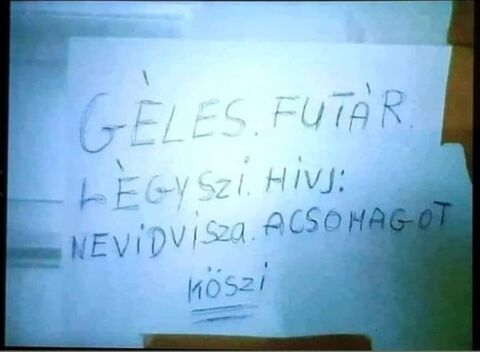 GÈLES. FUTÀR.
LÈGYSZI. HIVJ:
NEVIDVISZA. ACSOMAGOT
KÖSZI